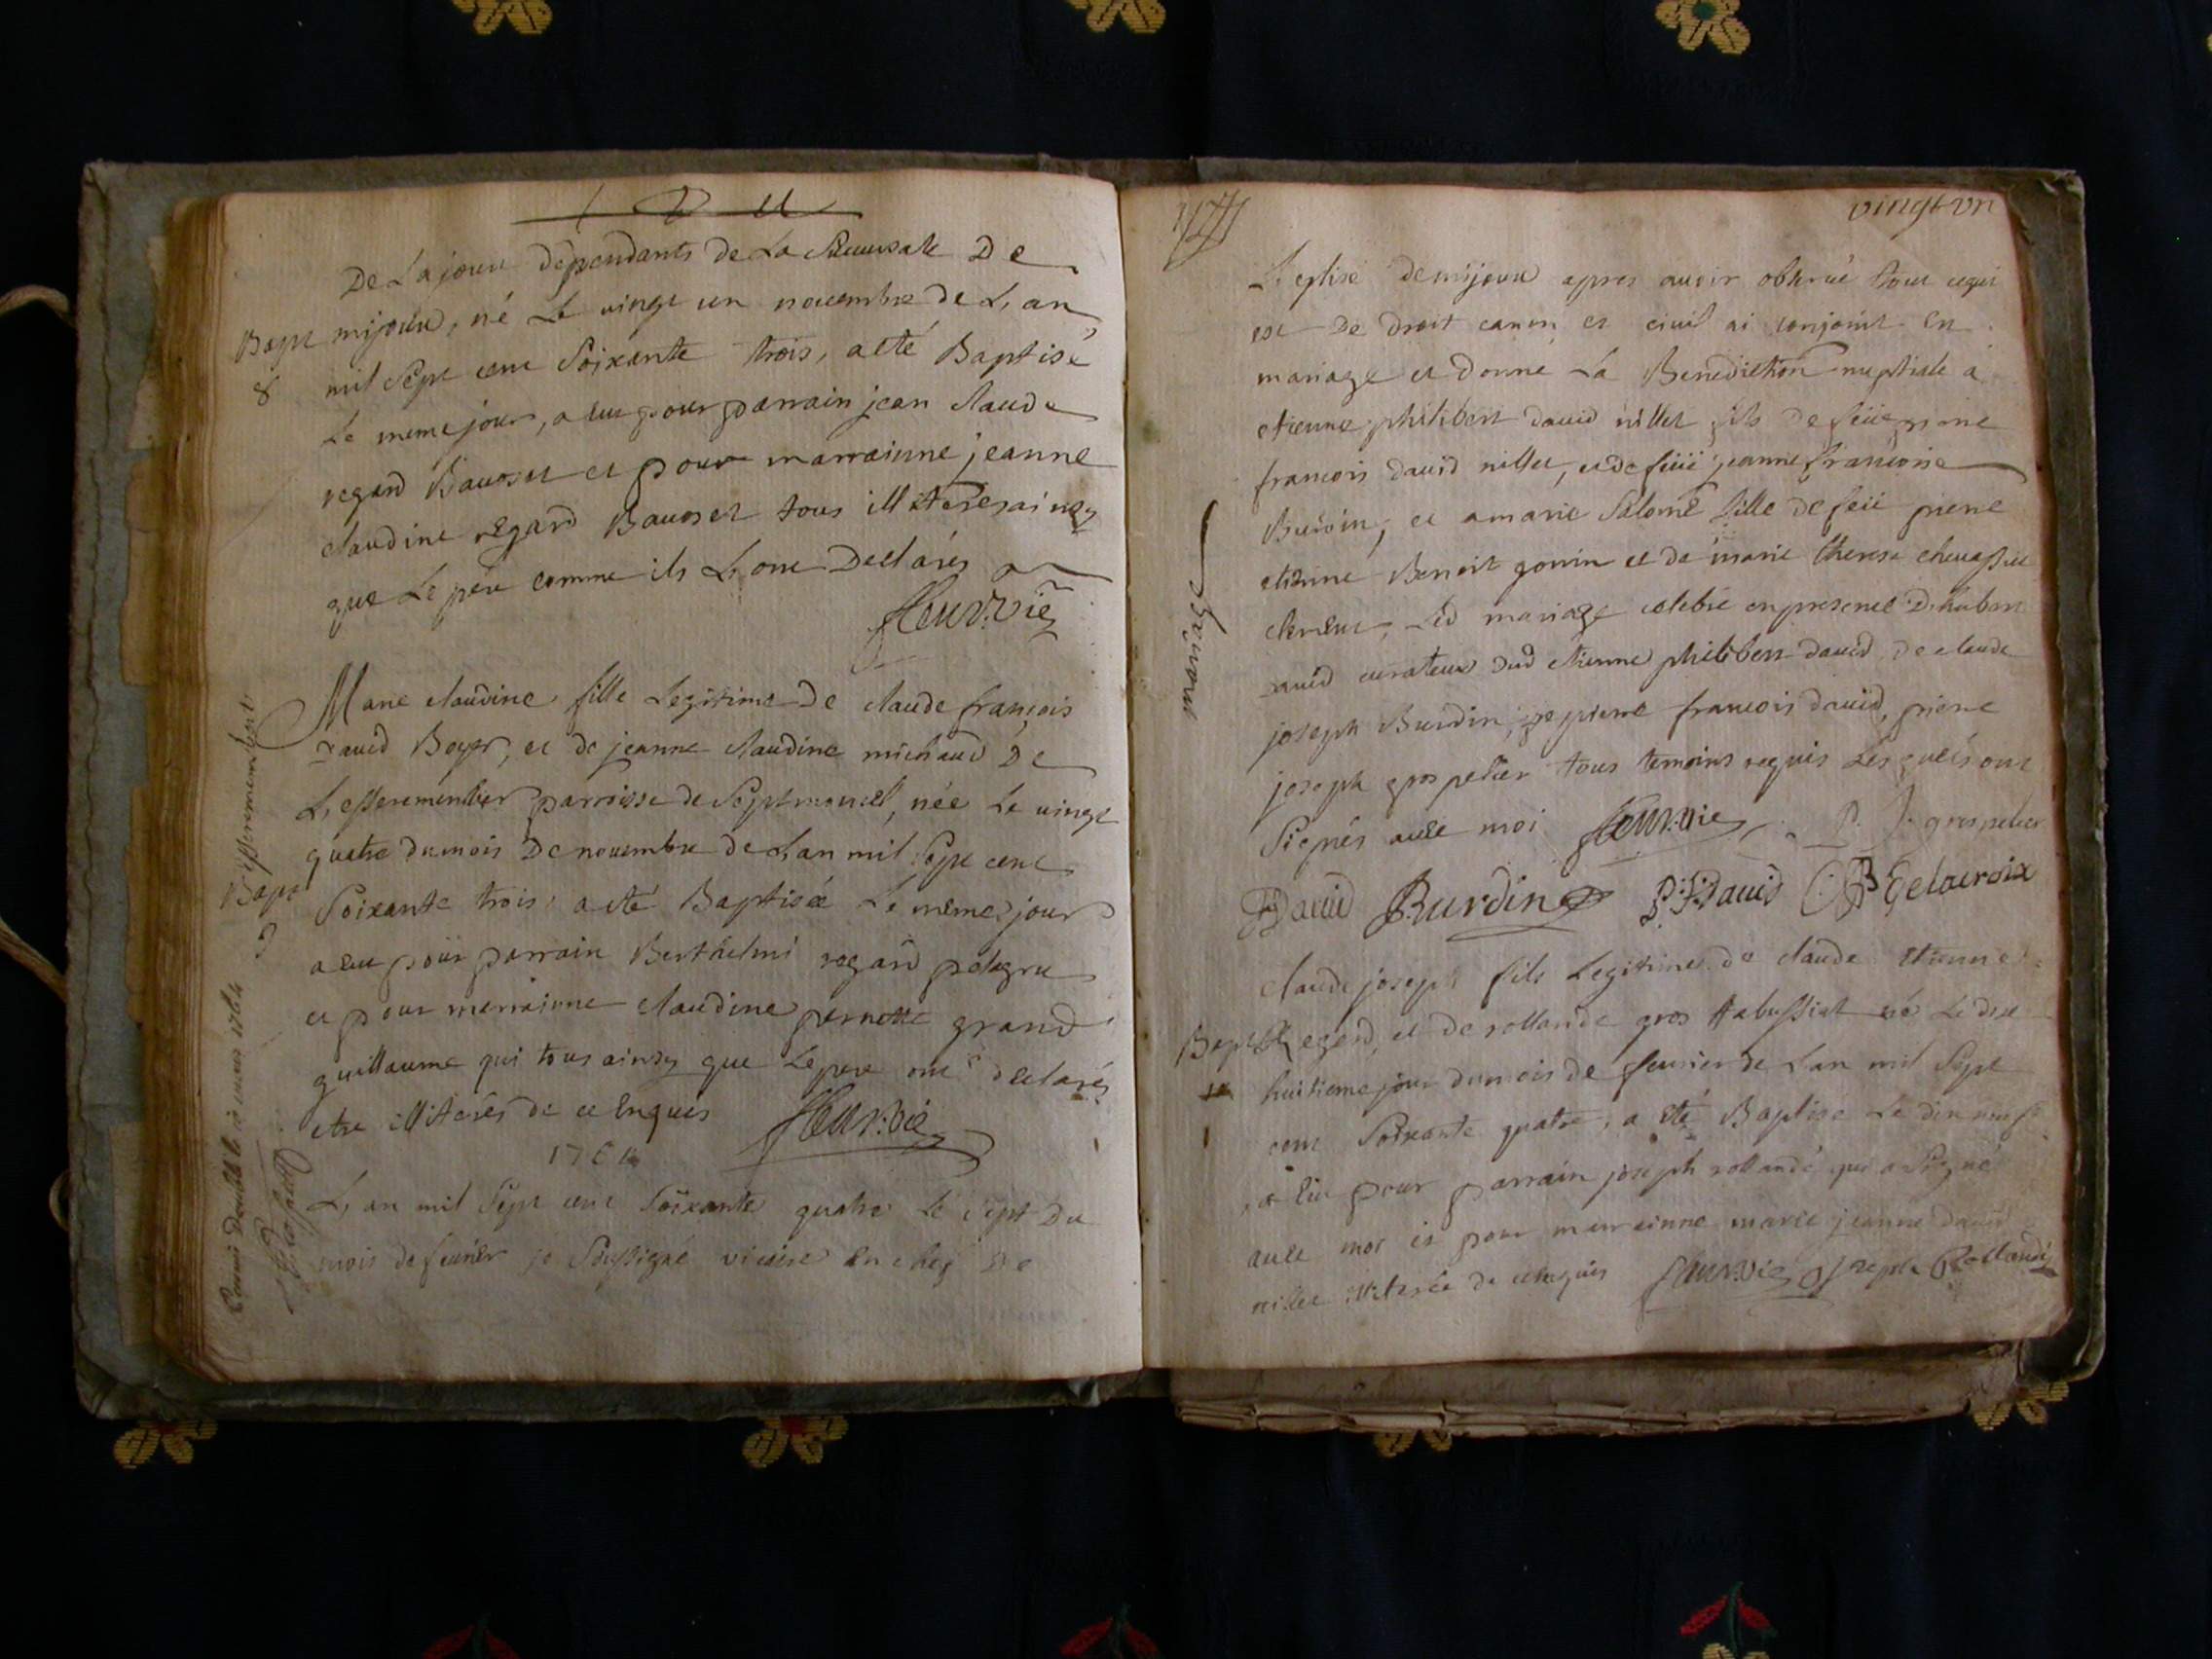 De Lajoux dependants de La Succursale De
mijoux, né Le vingt un novembre de L, an
Bapt
8
mil Sept cent Soixante trois, a eté Baptisé
Le meme jour, a eu pour parrain jean claude
regard Bavoset et pour marrainne jeanne
claudine regard Bavoset tous illiteres ainsy
que Le pere comme ils L, ont Declarés
Marie claudine fille Legitime De claude françois
David Boyer, et de jeanne claudine michaud De
L, essermentier parroisse de Septmoncel, née Le vingt
quatre du mois De novembre de L an mil Sept cent
Bapt
9
Soixante trois, a eté Baptisée Le même jour
a eu pour parrain Berthelmi regard
et pour marrainne claudine pernette grand
guillaume qui tous ainsy que Le pere ont declarés
etre illiterés de ce Enquis
1764
L, an mil Sept cent Soixante quatre Le Sept Du
mois de fevrier je Soussigné vicaire en chef De
vingt vn
L, eglise de mijoux apres avoir observé tout cequi
est De Droit canon et civil ai conjoint En
mariage et donné La Benediction nuptiale a
etienne philibert david nillet fils de feüe pierre
francois david nillet, et de feüe jeanne francoise
Burdin, et a marie Salomé fille de feüe pierre
etienne Benoit gonin et de marie therese chevassu
, Led mariage celebré en presence D.
David curateur dud etienne philibert david, De claude
joseph Burdin, De pierre francois david, pierre
joseph grospelier tous temoins requis Lesquels ont
Signés avec moi P. J. grospelier
David Burdin P: F: David Delacroix
claude joseph fils Legitime de claude Etienne
Bapt
Regard, et de rollande gros né Le dix
huitieme jour du mois de fevrier de L an mil Sept
cent Soixante quatre, a eté Baptisé Le dix neuf
, a Eu pour parrain joseph rollandé qui a Signé
avec moi et pour marrainne marie jeanne david
nillet illiterée de ce enquis Joseph Rollandé